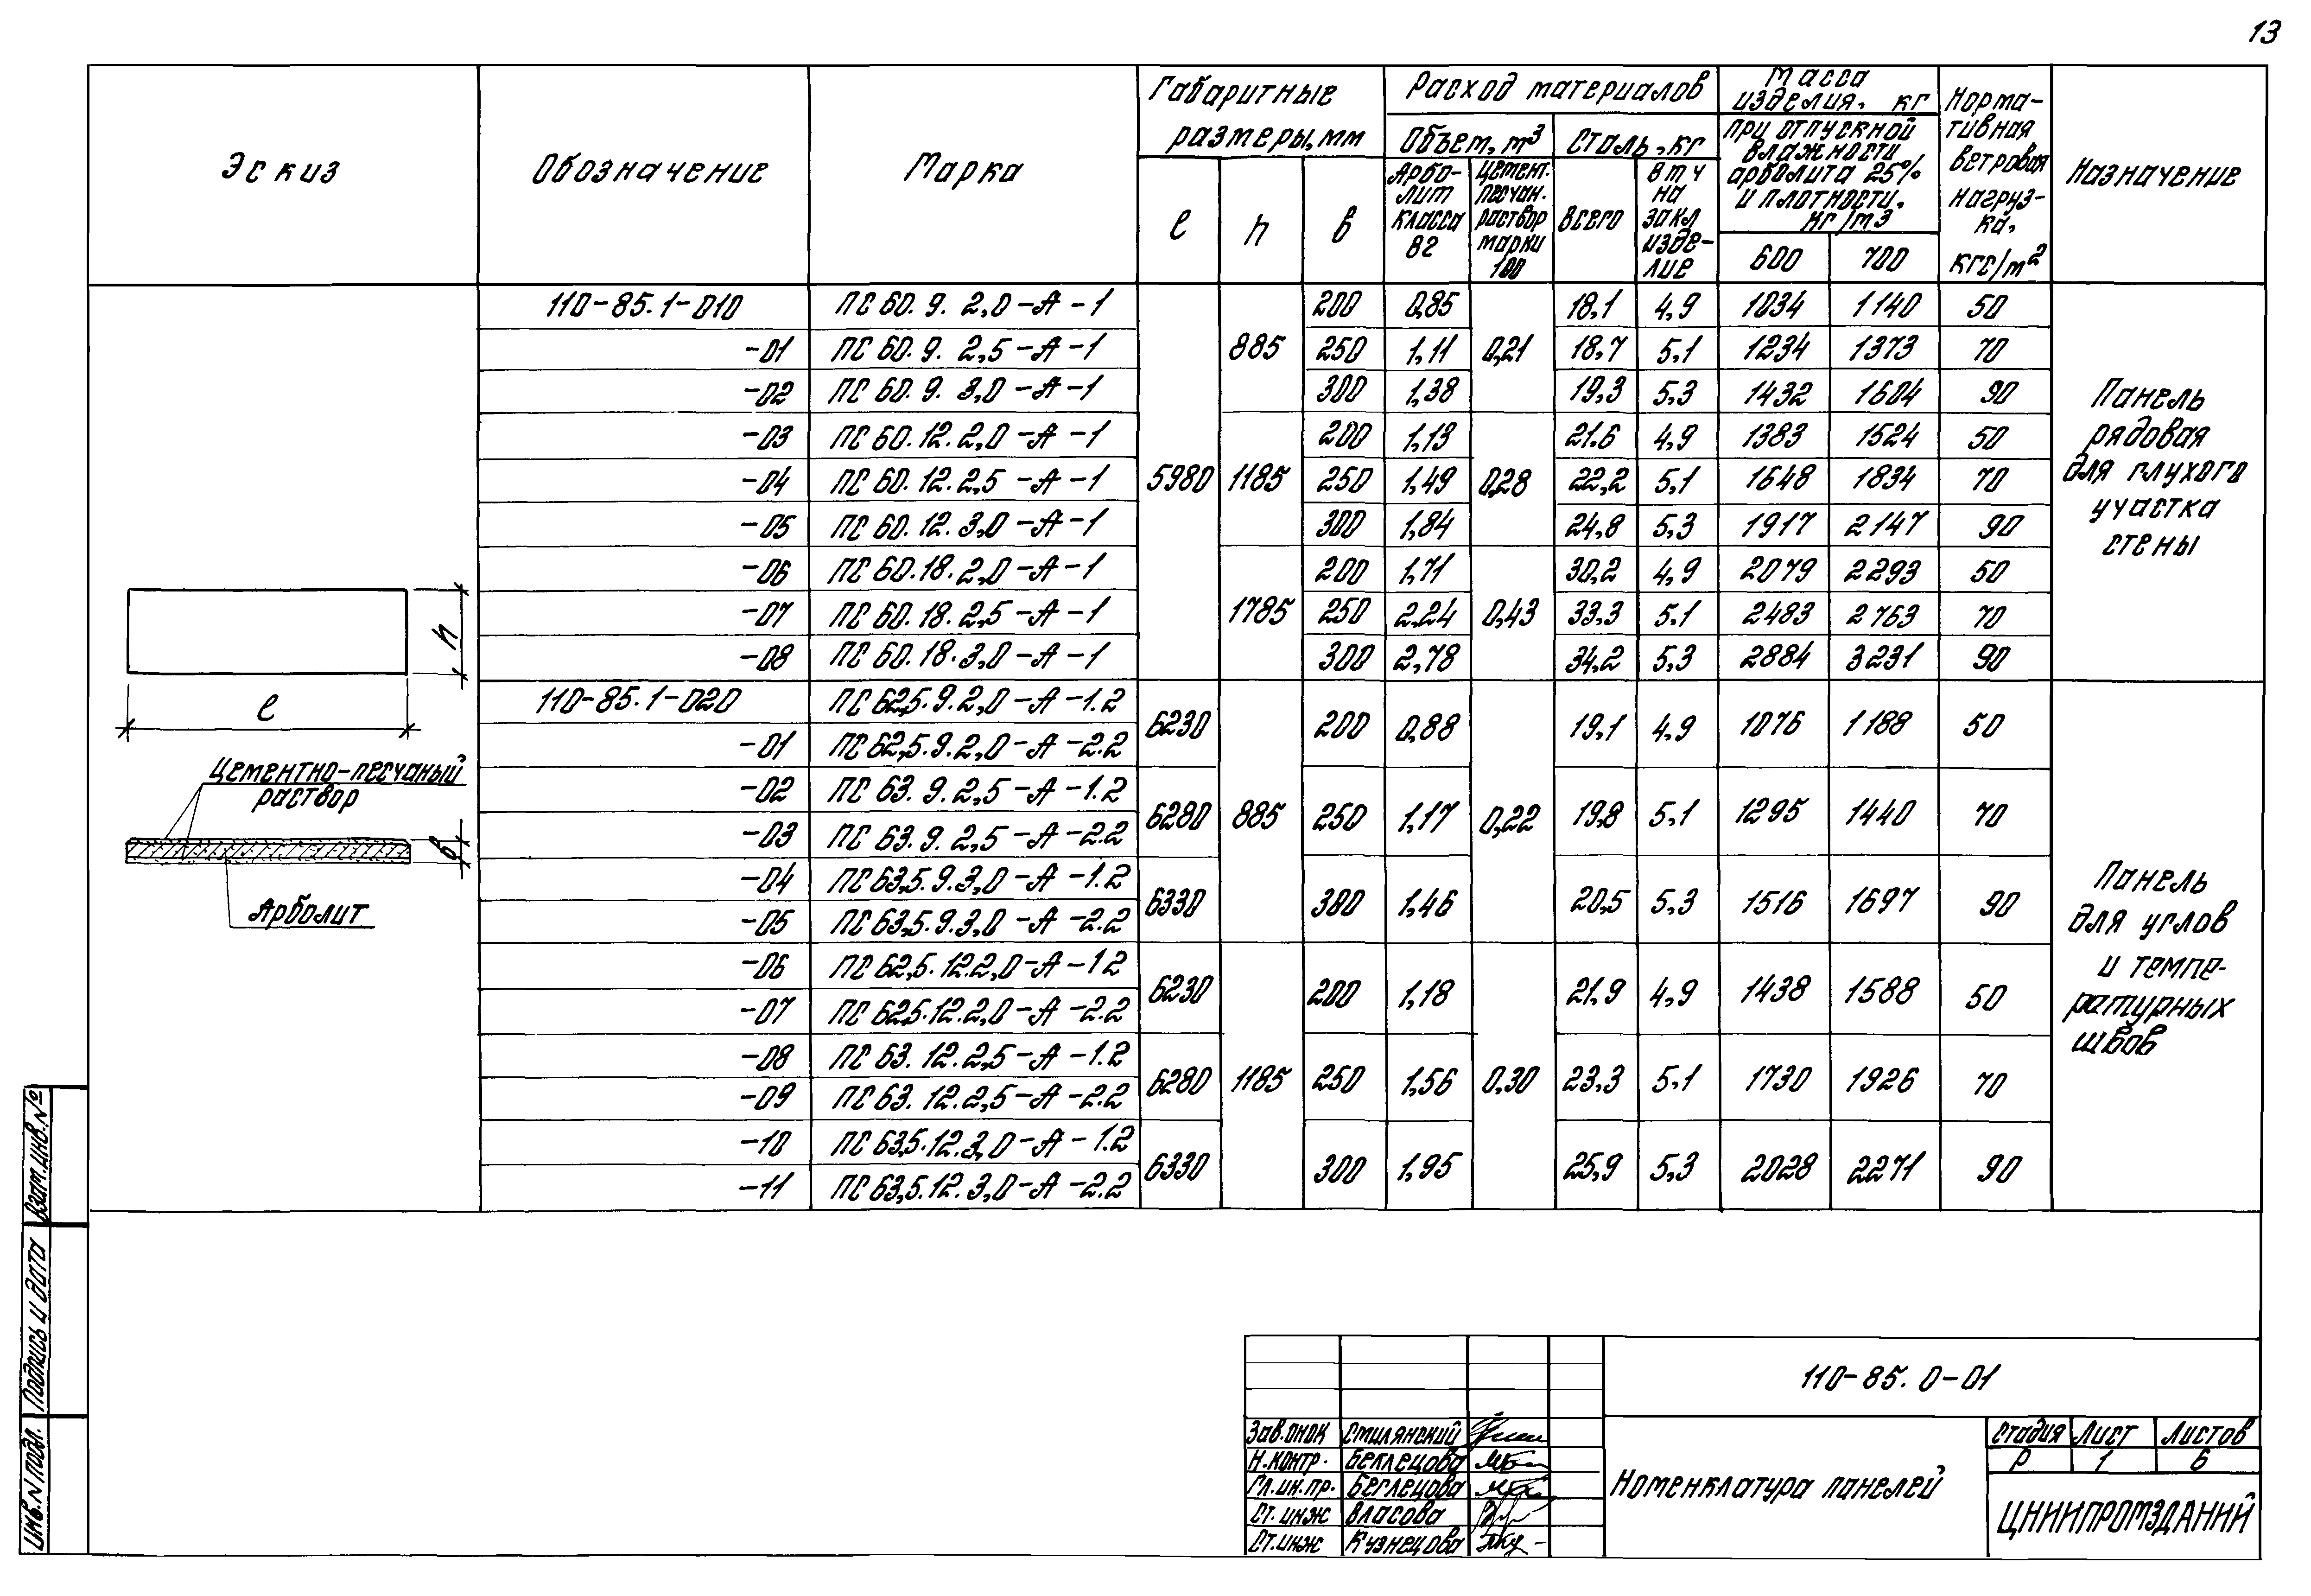 13
Эскиз
Обозначение
Марка
Габаритные
размеры, мм
l
h
в
Расход материалов
Объем, м3
Сталь, кг
Арбо-
лит
класса
В2
Цемент.
песчан.
раствор
марки
100
всего
в т ч
на
закл
изде-
лие
Масса
изделия, кг
при отпускной
влажности
арболита 25%
и плотности,
кг/м3
600
700
Норма-
тивная
ветровая
нагруз-
ка,
кгс/м2
Назначение
110-85.1-010 ПС 60. 9. 2,0-А-1 200 0,85 18,1 4,9 1034 1140 50
-01 ПС 60. 9. 2,5-А-1 885 250 1,11 0,21 18,7 5,1 1234 1373 70
-02 ПС 60. 9. 3,0-А-1 300 1,38 19,3 5,3 1432 1604 90
-03 ПС 60. 12. 2,0-А-1 200 1,13 21.6 4,9 1383 1524 50
-04 ПС 60. 12. 2,5-А-1 5980 1185 250 1,49 0,28 22,2 5,1 1648 1834 70
-05 ПС 60. 12. 3,0-А-1 300 1,84 24,8 5,3 1917 2147 90
-06 ПС 60. 18. 2,0-А-1 200 1,71 30,2 4,9 2079 2293 50
-07 ПС 60. 18. 2,5-А-1 1785 250 2,24 0,43 33,3 5.1 2483 2763 70
-08 ПС 60. 18. 3,0-А-1 300 2,78 34,2 5,3 2884 3231 90
Панель
рядовая
для глухого
участка
стены
110-85.1-020 ПС 62,5. 9. 2,0-А-1.2
-01 ПС 62,5. 9. 2,0-А-2.2
6230 200 0,88 19,1 4,9 1076 1188 50
-02 ПС 63. 9. 2,5-А-1.2
-03 ПС 63. 9. 2,5-А-2.2
6280 885 250 1,17 0,22 19,8 5.1 1295 1440 70
-04 ПС 63,5. 9. 3,0-А-1.2
-05 ПС 63,5. 9. 3,0-А-2.2
6330 300 1,46 20,5 5,3 1516 1697 90
-06 ПС 62,5. 12.2,0-А-1 2
-07 ПС 62,5. 12. 2,0-А-2.2
6230 200 1,18 21,9 4,9 1438 1588 50
-08 ПС 63. 12. 2,5-А-1.2
-09 ПС 63. 12. 2,5-А-2.2
6280 1185 250 1,56 0,30 23,3 5,1 1730 1926 70
-10 ПС 63,5. 12. 3,0-А-1.2
-11 ПС 63,5. 12. 3,0-А-2.2
6330 300 1,95 25,9 5,3 2028 2271 90
Панель
для углов
и темпе-
ратурных
швов
h
l
Цементно-песчаный
раствор
в
Арболит
Взам.инв.№
Подпись и дата
Инв.N подл.
110-85. 0-01
Зав.онок Смилянский
Н.контр. Беглецова
Гл.ин.пр. Беглецова
Ст. инж Власова
Ст.инж Кузнецова
Номенклатура панелей
Стадия Лист Листов
Р 1 6
ЦНИИПРОМЗДАНИЙ